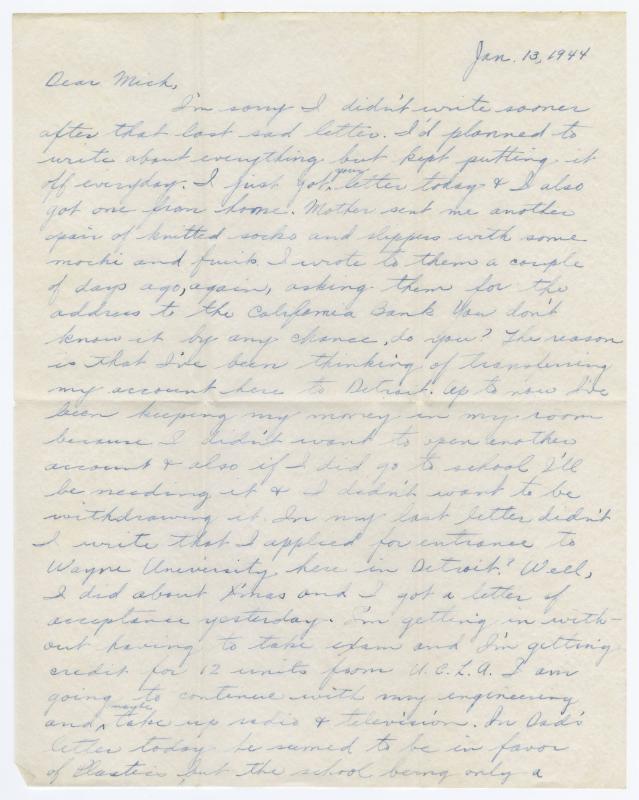 Jan. 13, 1944
Dear Mich,
I'm sorry I didn't write sooner
after that last sad letter. I'd planned to
write about everything but kept putting it
off everyday. I just got your letter today & I also
got one from home. Mother sent me another
pair of knitted socks and slippers with some
mochi and fruit. I wrote to them a couple
of days ago, again, asking them for the
address to the California Bank. You don't
know it by any chance, do you? The reason
is that I've been thinking of transferring
my account here to Detroit. Up to now I've
been keeping my money in my room
because I didn't want to open another
account & also if I did go to school I'll
be needing it & I didn't want to be
withdrawing it. In my last letter didn't
I write that I applied for entrance to
Wayne University here in Detroit? Well,
I did about Xmas and I got a letter of
acceptance yesterday. I'm getting in with-
out having to take exam and I'm getting
credit for 12 units from U.C.L.A. I am
going to continue with my engineering
and maybe take up radio & television. In Dad's
letter today he seemed to be in favor
of Plastics, but the school being only a